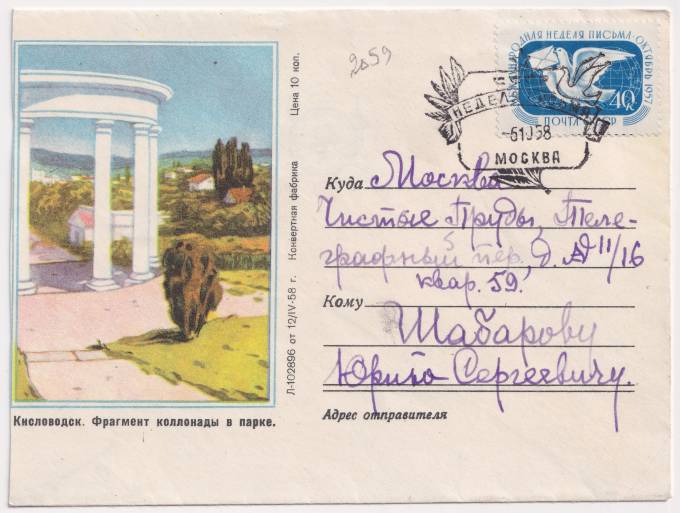 2059
НАРОДНАЯ НЕДЕЛЯ ПИСЬМА·ОКТЯБРЬ 1957
40к
ПОЧТА
НЕДЕЛ
-5 10 58
МОСКВА
Цена 10 коп.
Конвертная фабрика
Л-102896 от 12/IV-58 г.
Куда Москва
Чистые Пруды, Теле-
графный пер. д. 11/16
квар. 59.
Кому
Шабарову
Юрию Сергеевичу.
Адрес отправителя
Кисловодск. Фрагмент коллонады в парке.